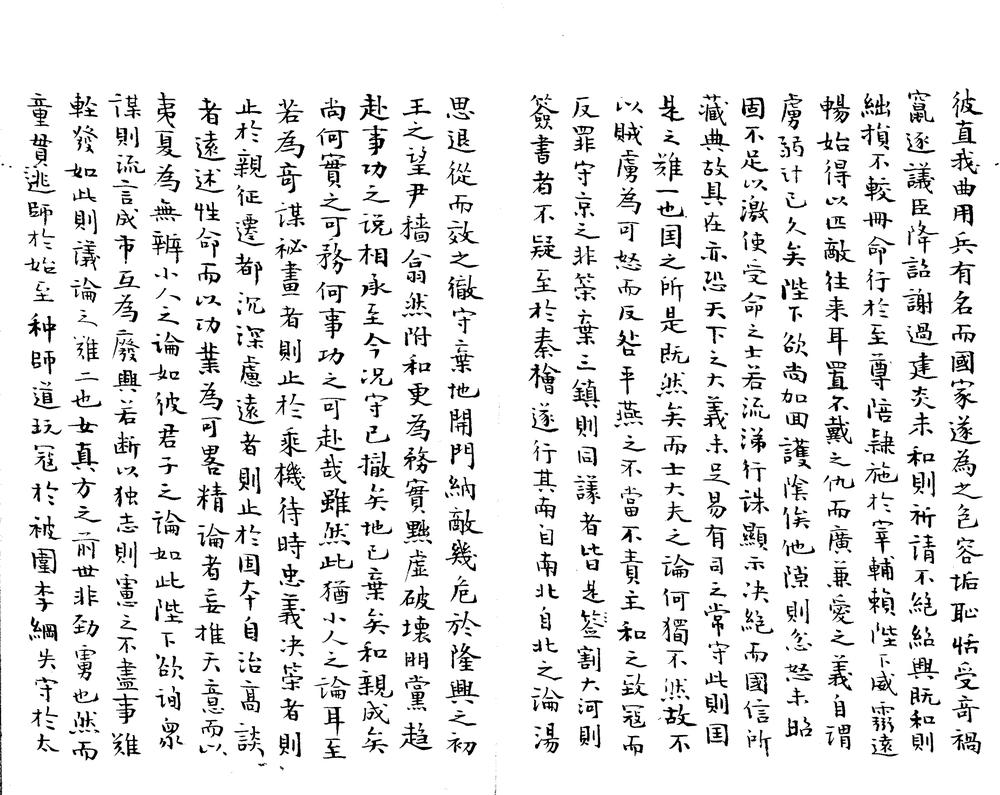 彼直我曲用兵有名而國家遂為之包容垢恥恬受奇禍
竄逐議臣降詔謝過建炎未和則祈請不絕紹興既和則
絀損不較冊命行於至尊陪隸施於宰輔賴陛下威靈遠
暢始得以匹敵往來耳置不戴之仇而廣兼愛之義自謂
虜弱計已久矣陛下欲尚加回護陰俟他隙則忿怒未昭
固不足以激使受命之士若流涕行誅顯示决絕而國信所
藏典故具在亦恐天下之大義未足易有司之常守此則国
是之難一也国之所是既然矣而士大夫之論何獨不然故不
以賊虜為可怒而反咎平燕之不當不責主和之致冦而
反罪守京之非策棄三鎮則同議者皆是簽割大河則
簽書者不疑至於秦檜遂行其南自南北自北之論湯
思退從而效之徹守棄地開門納敵幾危於隆興之初
王之望尹穡翕然附和更為務實黜虛破壞朋黨趨
赴事功之說相承至今况守已撤矣地已棄矣和親成矣
尚何實之可務何事功之可赴哉雖然此猶小人之論耳至
若為奇謀祕畫者則止於乘機待時忠義决策者則
止於親征遷都沉深慮遠者則止於固本自治高談
者遠述性命而以功業為可畧精論者妄推天意而以
夷夏為無辨小人之論如彼君子之論如此陛下欲詢衆
謀則流言成市互為廢興若断以独志則憲之不盡事難
輕發如此則議論之難二也女真方之前世非劲虜也然而
童貫逃師於始至种師道玩冦於被圍李綱失守於太